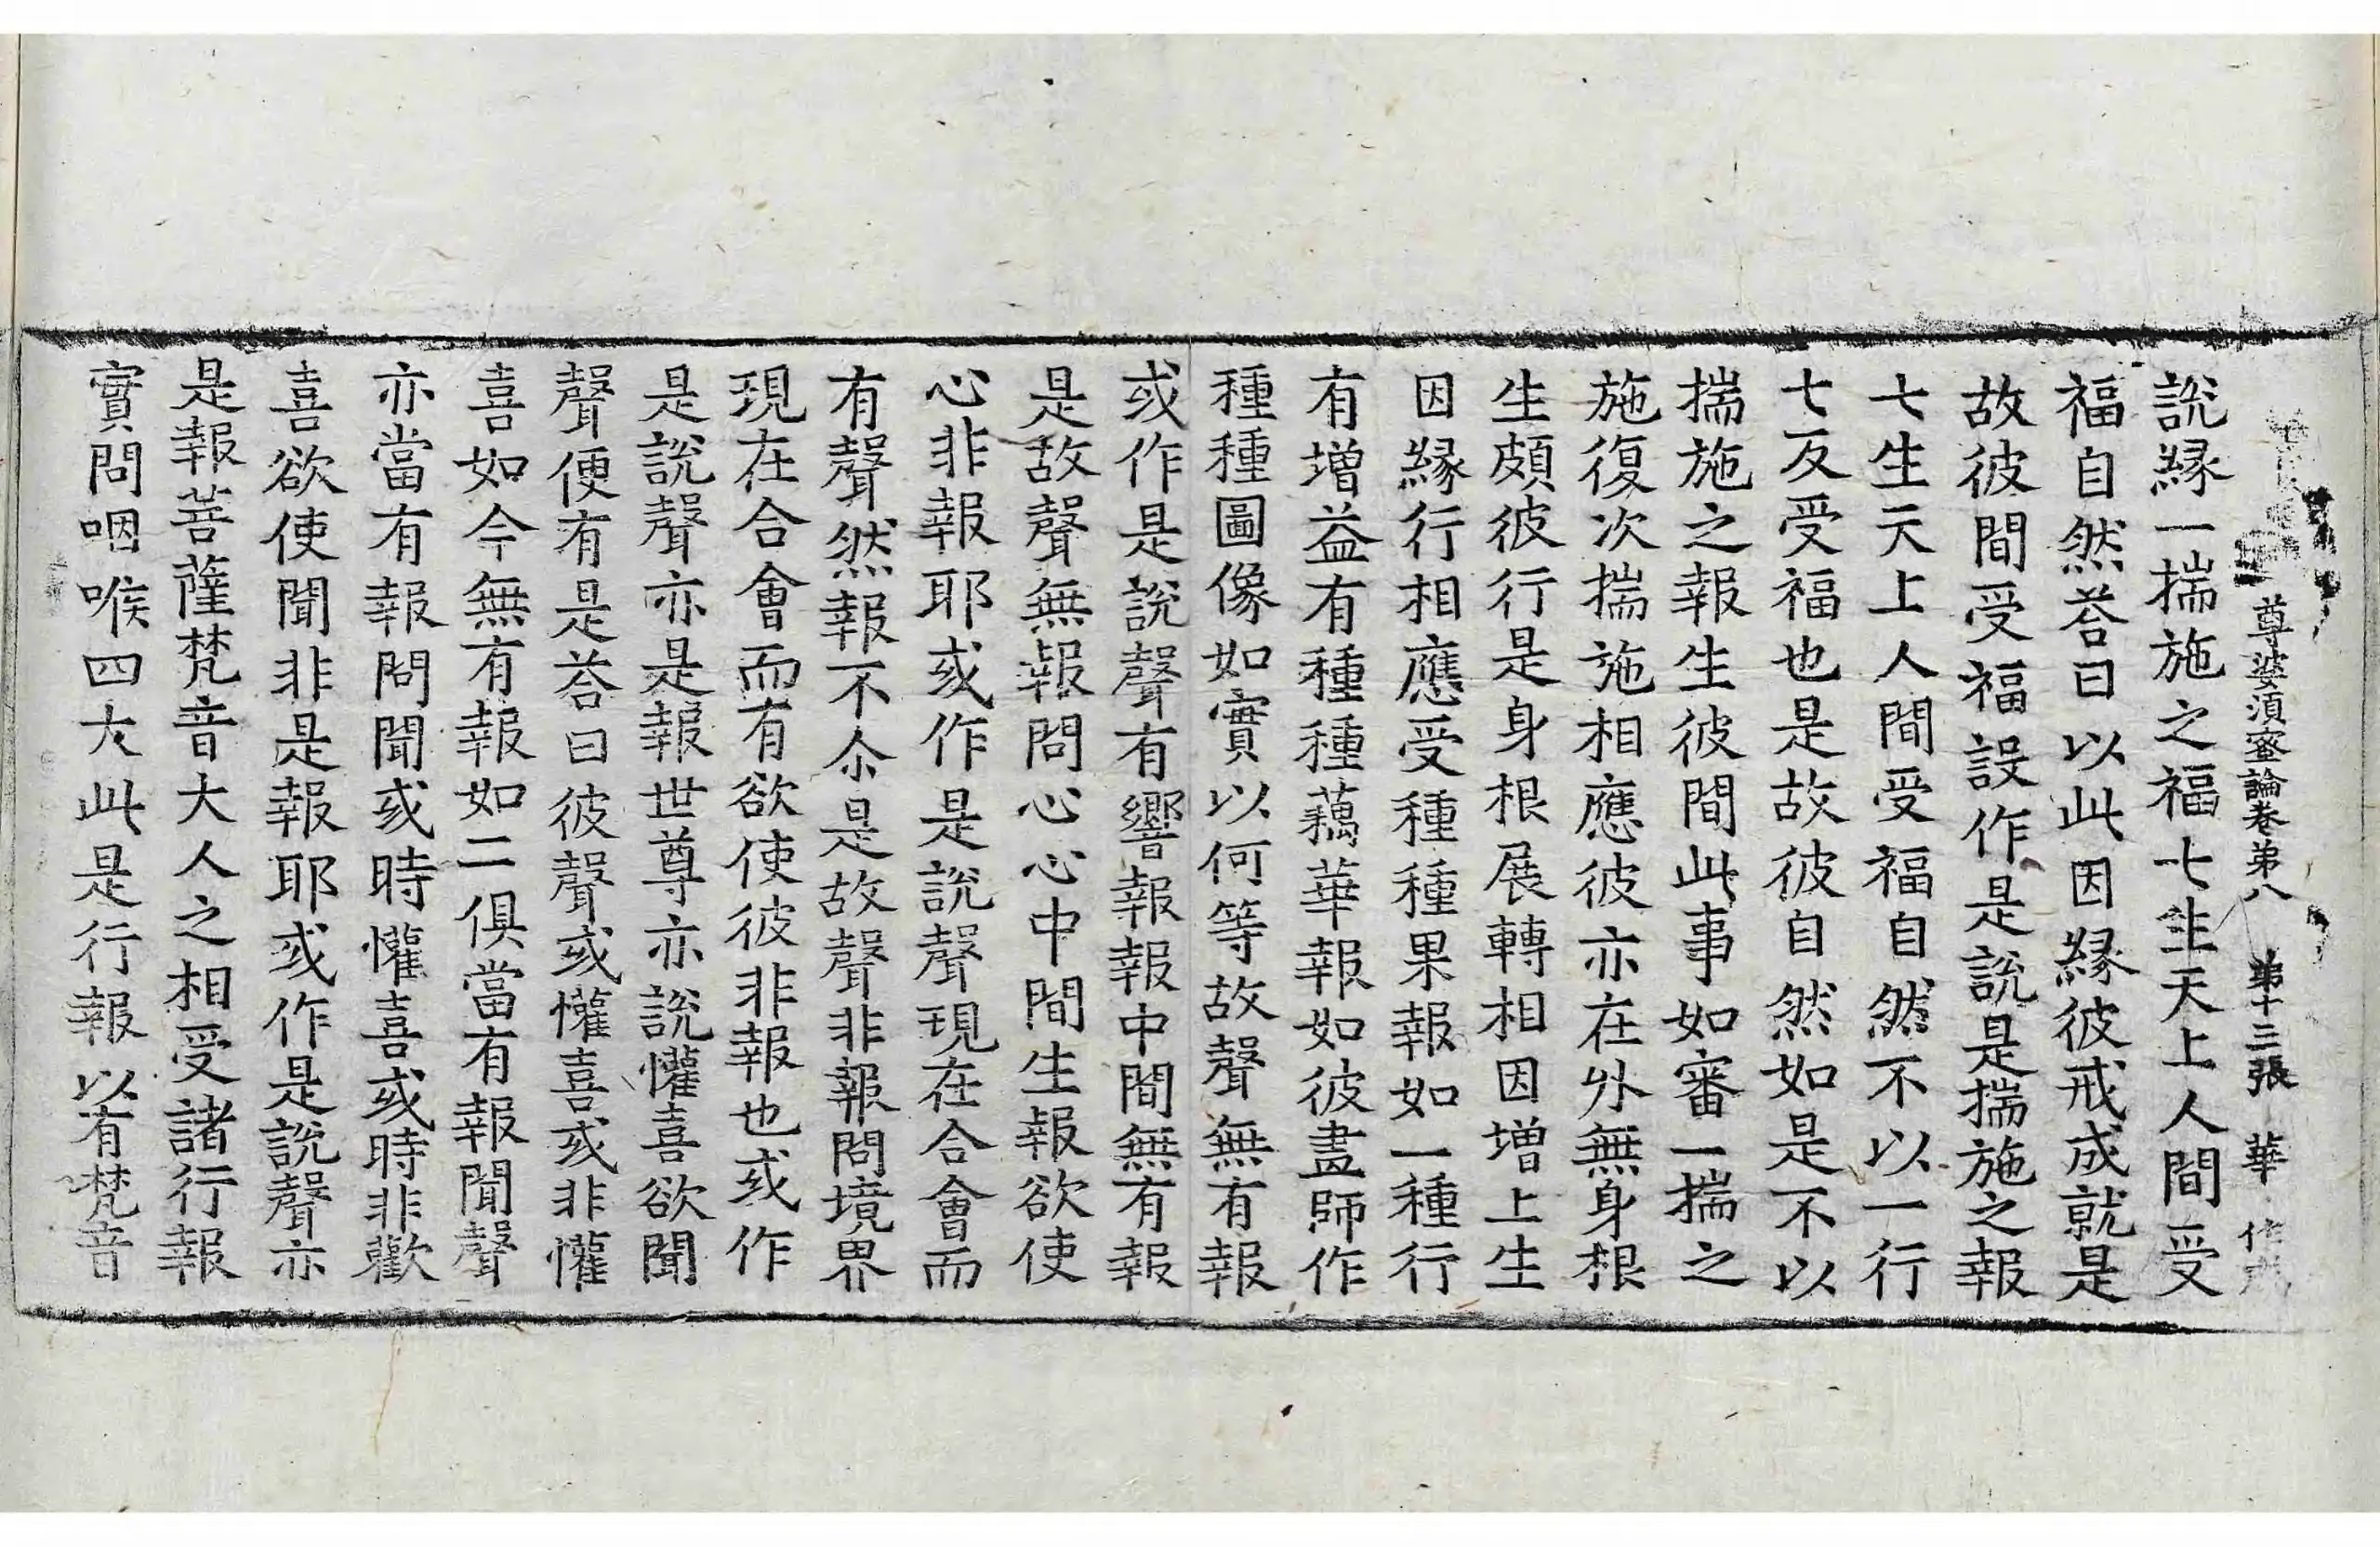 尊婆須蜜論卷苐八　苐十三張　華
說緣一揣施之福七生天上人間受
福自然荅曰以此因緣彼戒成就是
故彼間受福設作是說是揣施之報
七生天上人間受福自然不以一行
七反受福也是故彼自然如是不以
揣施之報生彼間此事如審一揣之
施復次揣施相應彼亦在外無身根
生頗彼行是身根展轉相因增上生
因緣行相應受種種果報如一種行
有增益有種種藕華報如彼畫師作
種種圖像如實以何等故聲無有報
或作是說聲有響報報中間無有報
是故聲無報問心心中間生報欲使
心非報耶或作是說聲現在合會而
有聲然報不尒是故聲非報問境界
現在合會而有欲使彼非報也或作
是說聲亦是報世尊亦說懽喜欲聞
聲便有是荅曰彼聲或懽喜或非懽
喜如今無有報如二俱當有報聞聲
亦當有報問聞或時懽喜或時非歡
喜欲使聞非是報耶或作是說聲亦
是報菩薩梵音大人之相受諸行報
實問咽喉四大此是行報以有梵音